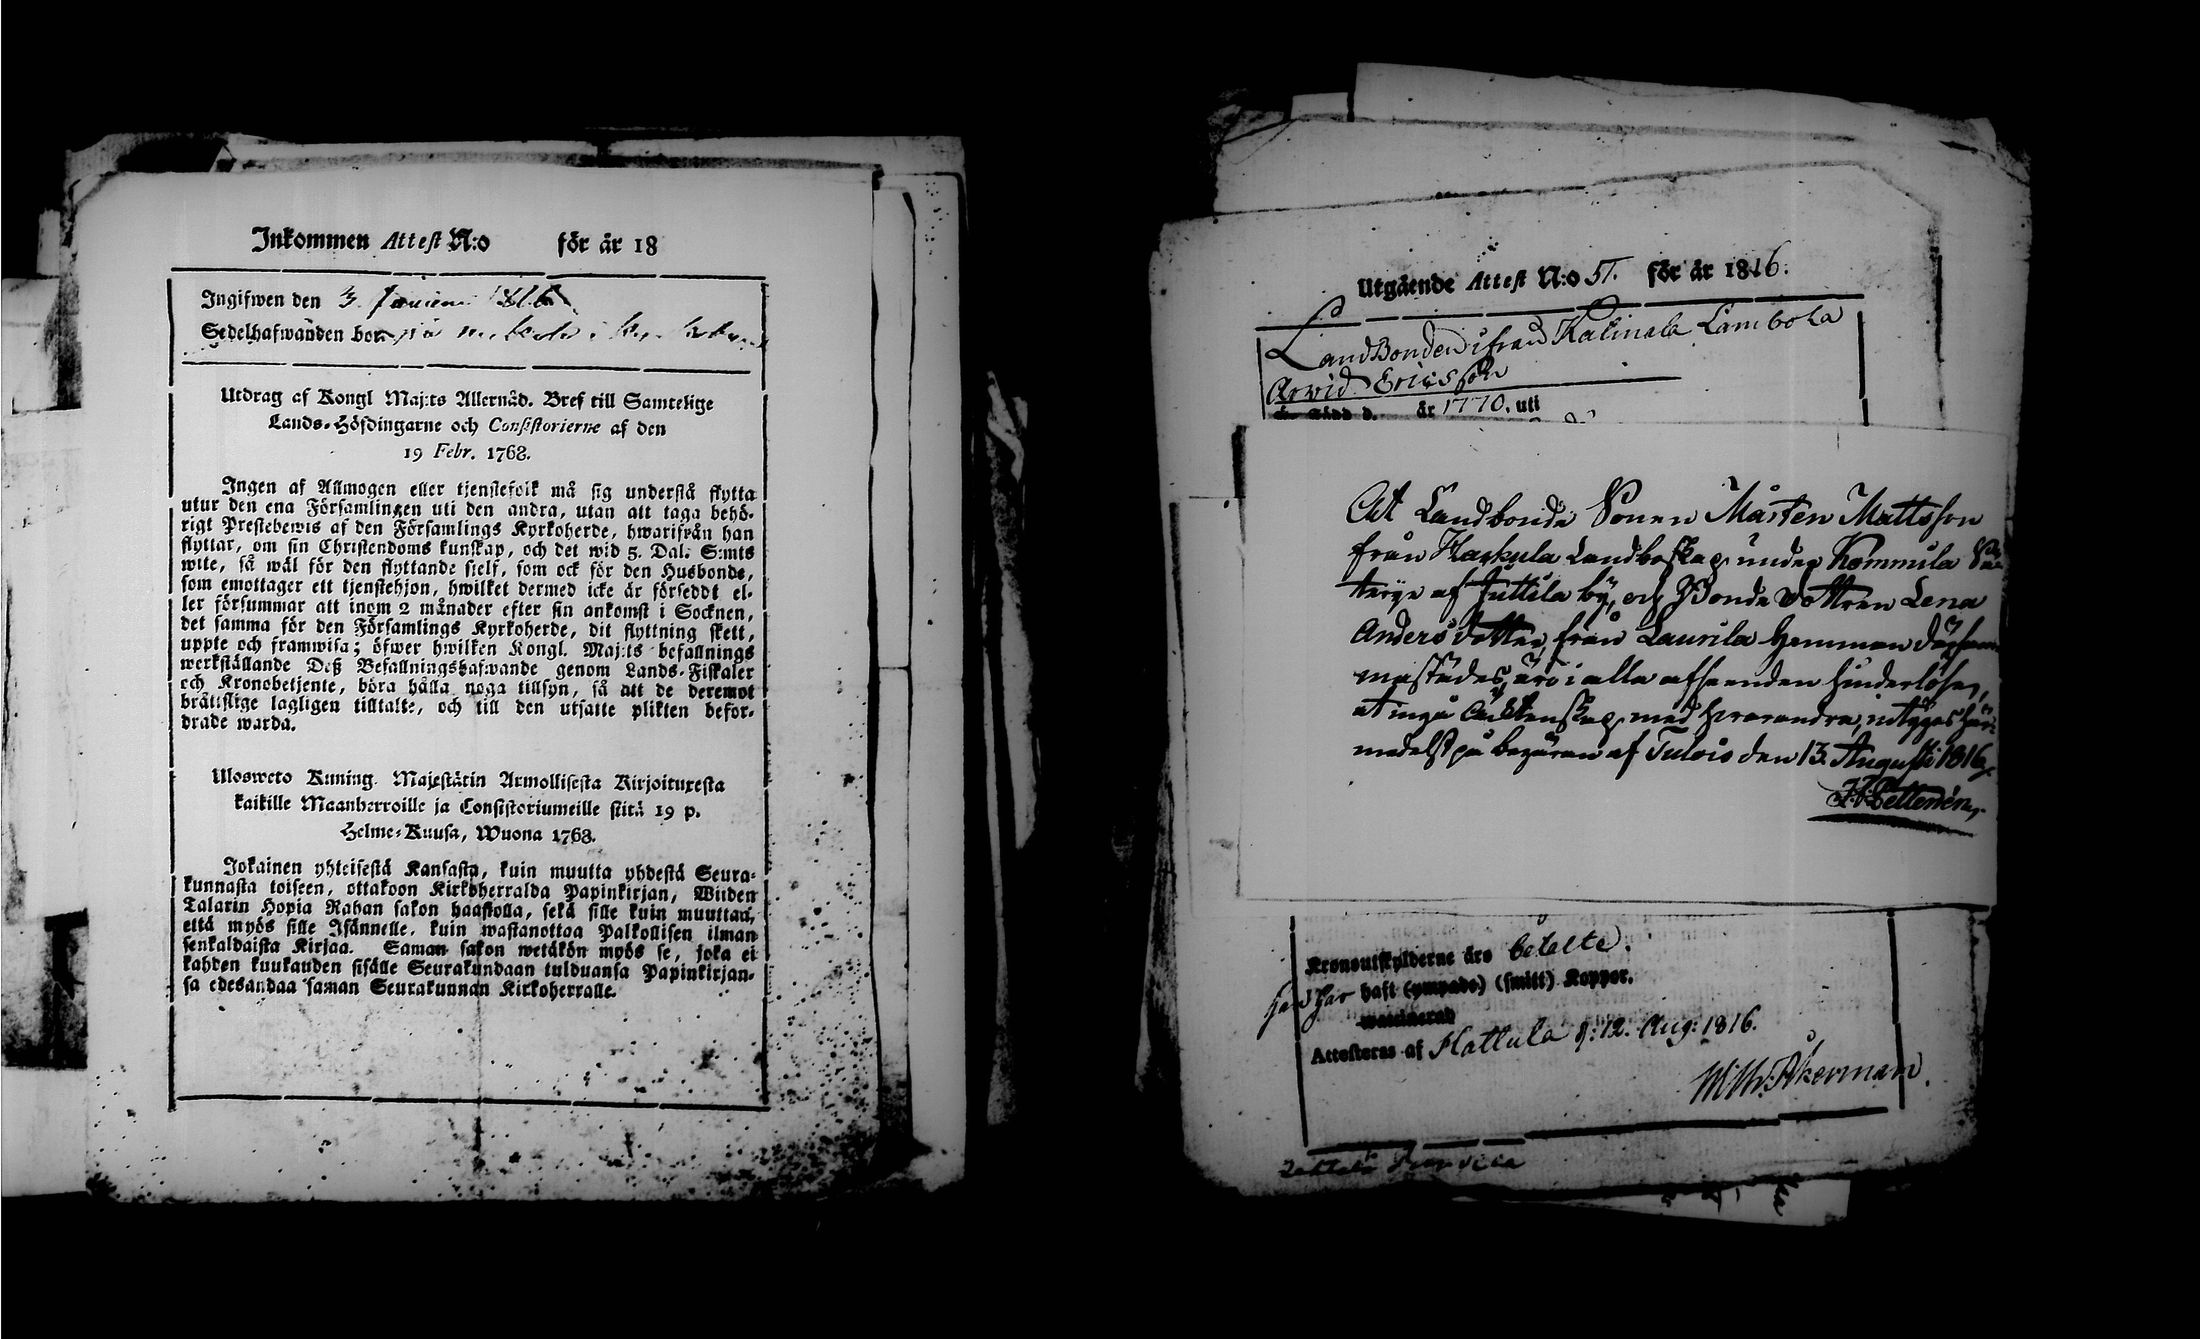 Inkommen Attest N:o för år 18
Ingifwen den 3 1816
Sedelhafwanden bor på
Utdrag af Kongl Maj:ts Allernåd. Bref till Samtelige
Lands-Höfdingarne och Consistorierne af den
19 Febr. 1768.
Ingen af Allmogen eller tjenstefolk må sig understå flytta
utur den ena Församlingen uti den andra, utan att taga behö-
rigt Prestebewis af den Församlings Kyrkoherde, hwarifrån han
flyttar, om sin Christendoms kunskap, och det wid 5. Dal. S:mts
wite, så wäl för den flyttande sielf, som ock för den Husbonde,
som emottager ett tjenstehjon, hwilket dermed icke är försedt el-
ler försummar att inom 2 månader efter sin ankomst i Socknen,
det samma för den Församlings Kyrkoherde, dit flyttning skett,
uppte och framwisa; öfwer hwilken Kongl. Maj:ts befallnings
werkställande Deß Befallningshafwande genom Lands-Fiskaler
och Kronobetjente, böra hålla noga tillsyn, så att de deremot
bråttslige lagligen tilltalte, och till den utsatte plikten befor-
drade warda.
Ulosweto Kuning. Majestätin Armollisesta Kirjoituxesta
kaikille Maanherroille ja Consistoriumeille siitä 19 p.
Helme-Kuusa, Wuona 1768.
Jokainen yhteisestä Kansasta, kuin muutta yhdestä Seura-
kunnasta toiseen, ottakoon Kirkoherralda Papinkirjan, Wiiden
Talarin Hopia Rahan sakon haastolla, sekä sille kuin muuttaa,
että myös sille Isännelle, kuin wastanottaa Palkollisen ilman
senkaldaista Kirjaa. Saman sakon wetäkön myös se, joka ei
kahden kuukauden sisälle Seurakundaan tulduansa Papinkirjan-
sa edesandaa saman Seurakunnan Kirkoherralle.
Utgående Attest N:o 51. för år 1816.
LandBonden ifrån Katinala Lambola
Arvid Ericsson
är född d. år 1770. uti
Att Landbonde Sonen Mårten Mattsson
från Harkula Landboskap under Kommula
terye af Juttila by, och Bonde Dottren Lena
Anders dotter, från Laurila Hemman därsam-
mastädes, äro i alla afseenden hinderlöse,
at ingå äcktenskap med hvarandra, intygas här-
medelst på begäran af Tulois den 13. Augusti 1816.
Kronoutskylderne äro betalte.
han har haft (ympade) (smitt) Koppor.
waccinerad
Attesteras af Hattula d: 12. Aug: 1816.
Åkerman.